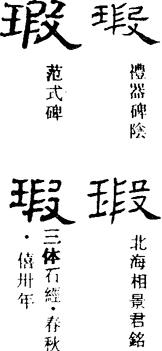 瑕
禮器碑陰
瑕
范式碑
瑕
北海相景君銘
瑕
三体石經·春秋
·僖卅年